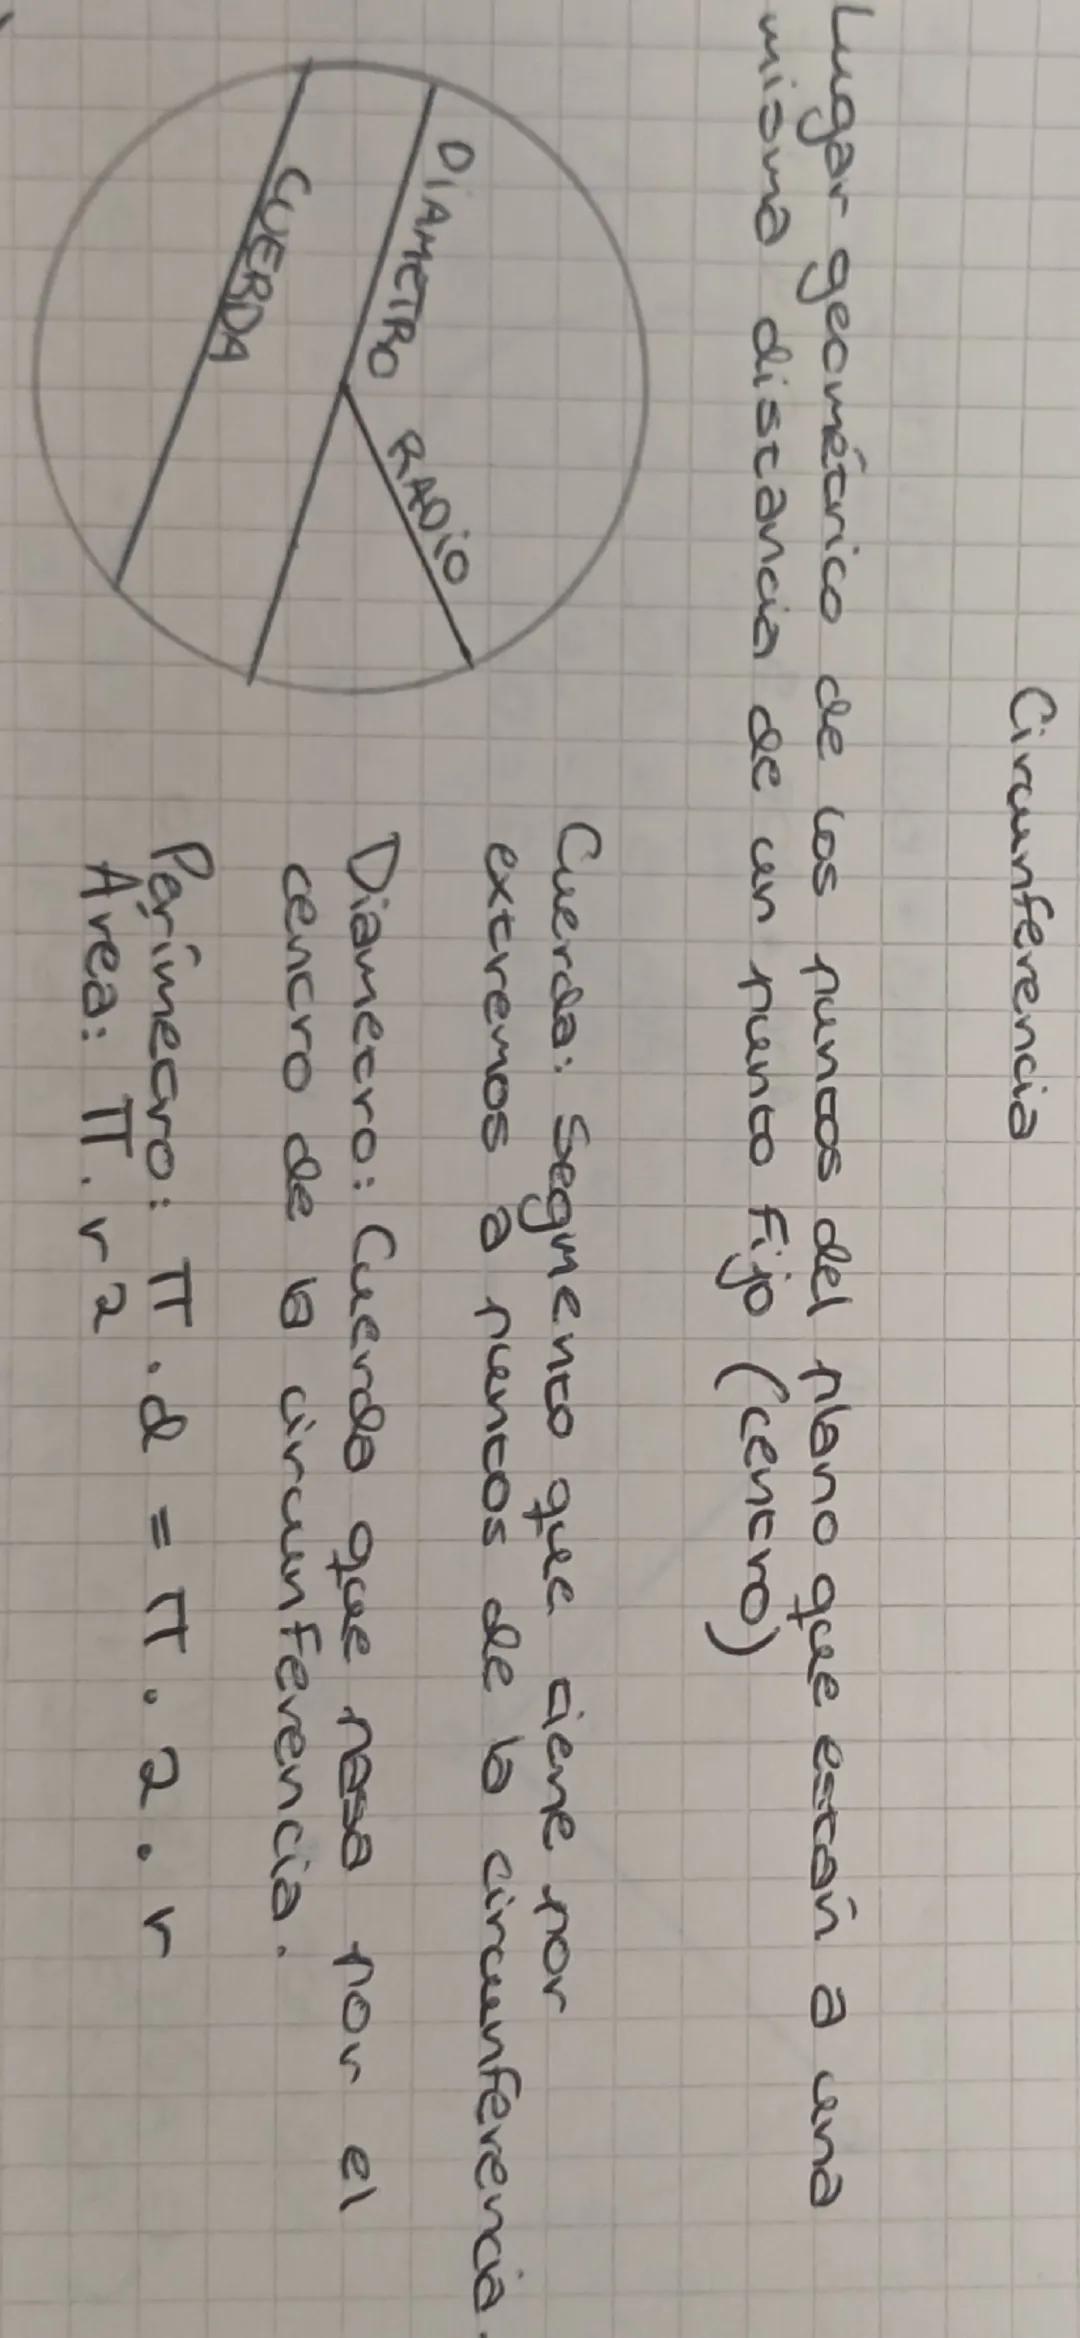 Circunferencia
Lugar geométrico de los puntos del plano que están a una
misma distancia de un punto fijo (centro)
DIAMETRO
RADIO
CUERDA
Cuerda: Segmento que tiene por
extremos a puntos de la circunferencia.
Diametro: Cuerda que pasa por el
centro de la circunferencia.
Perímetro: π . d = π . 2 . r
Área: π . r 2